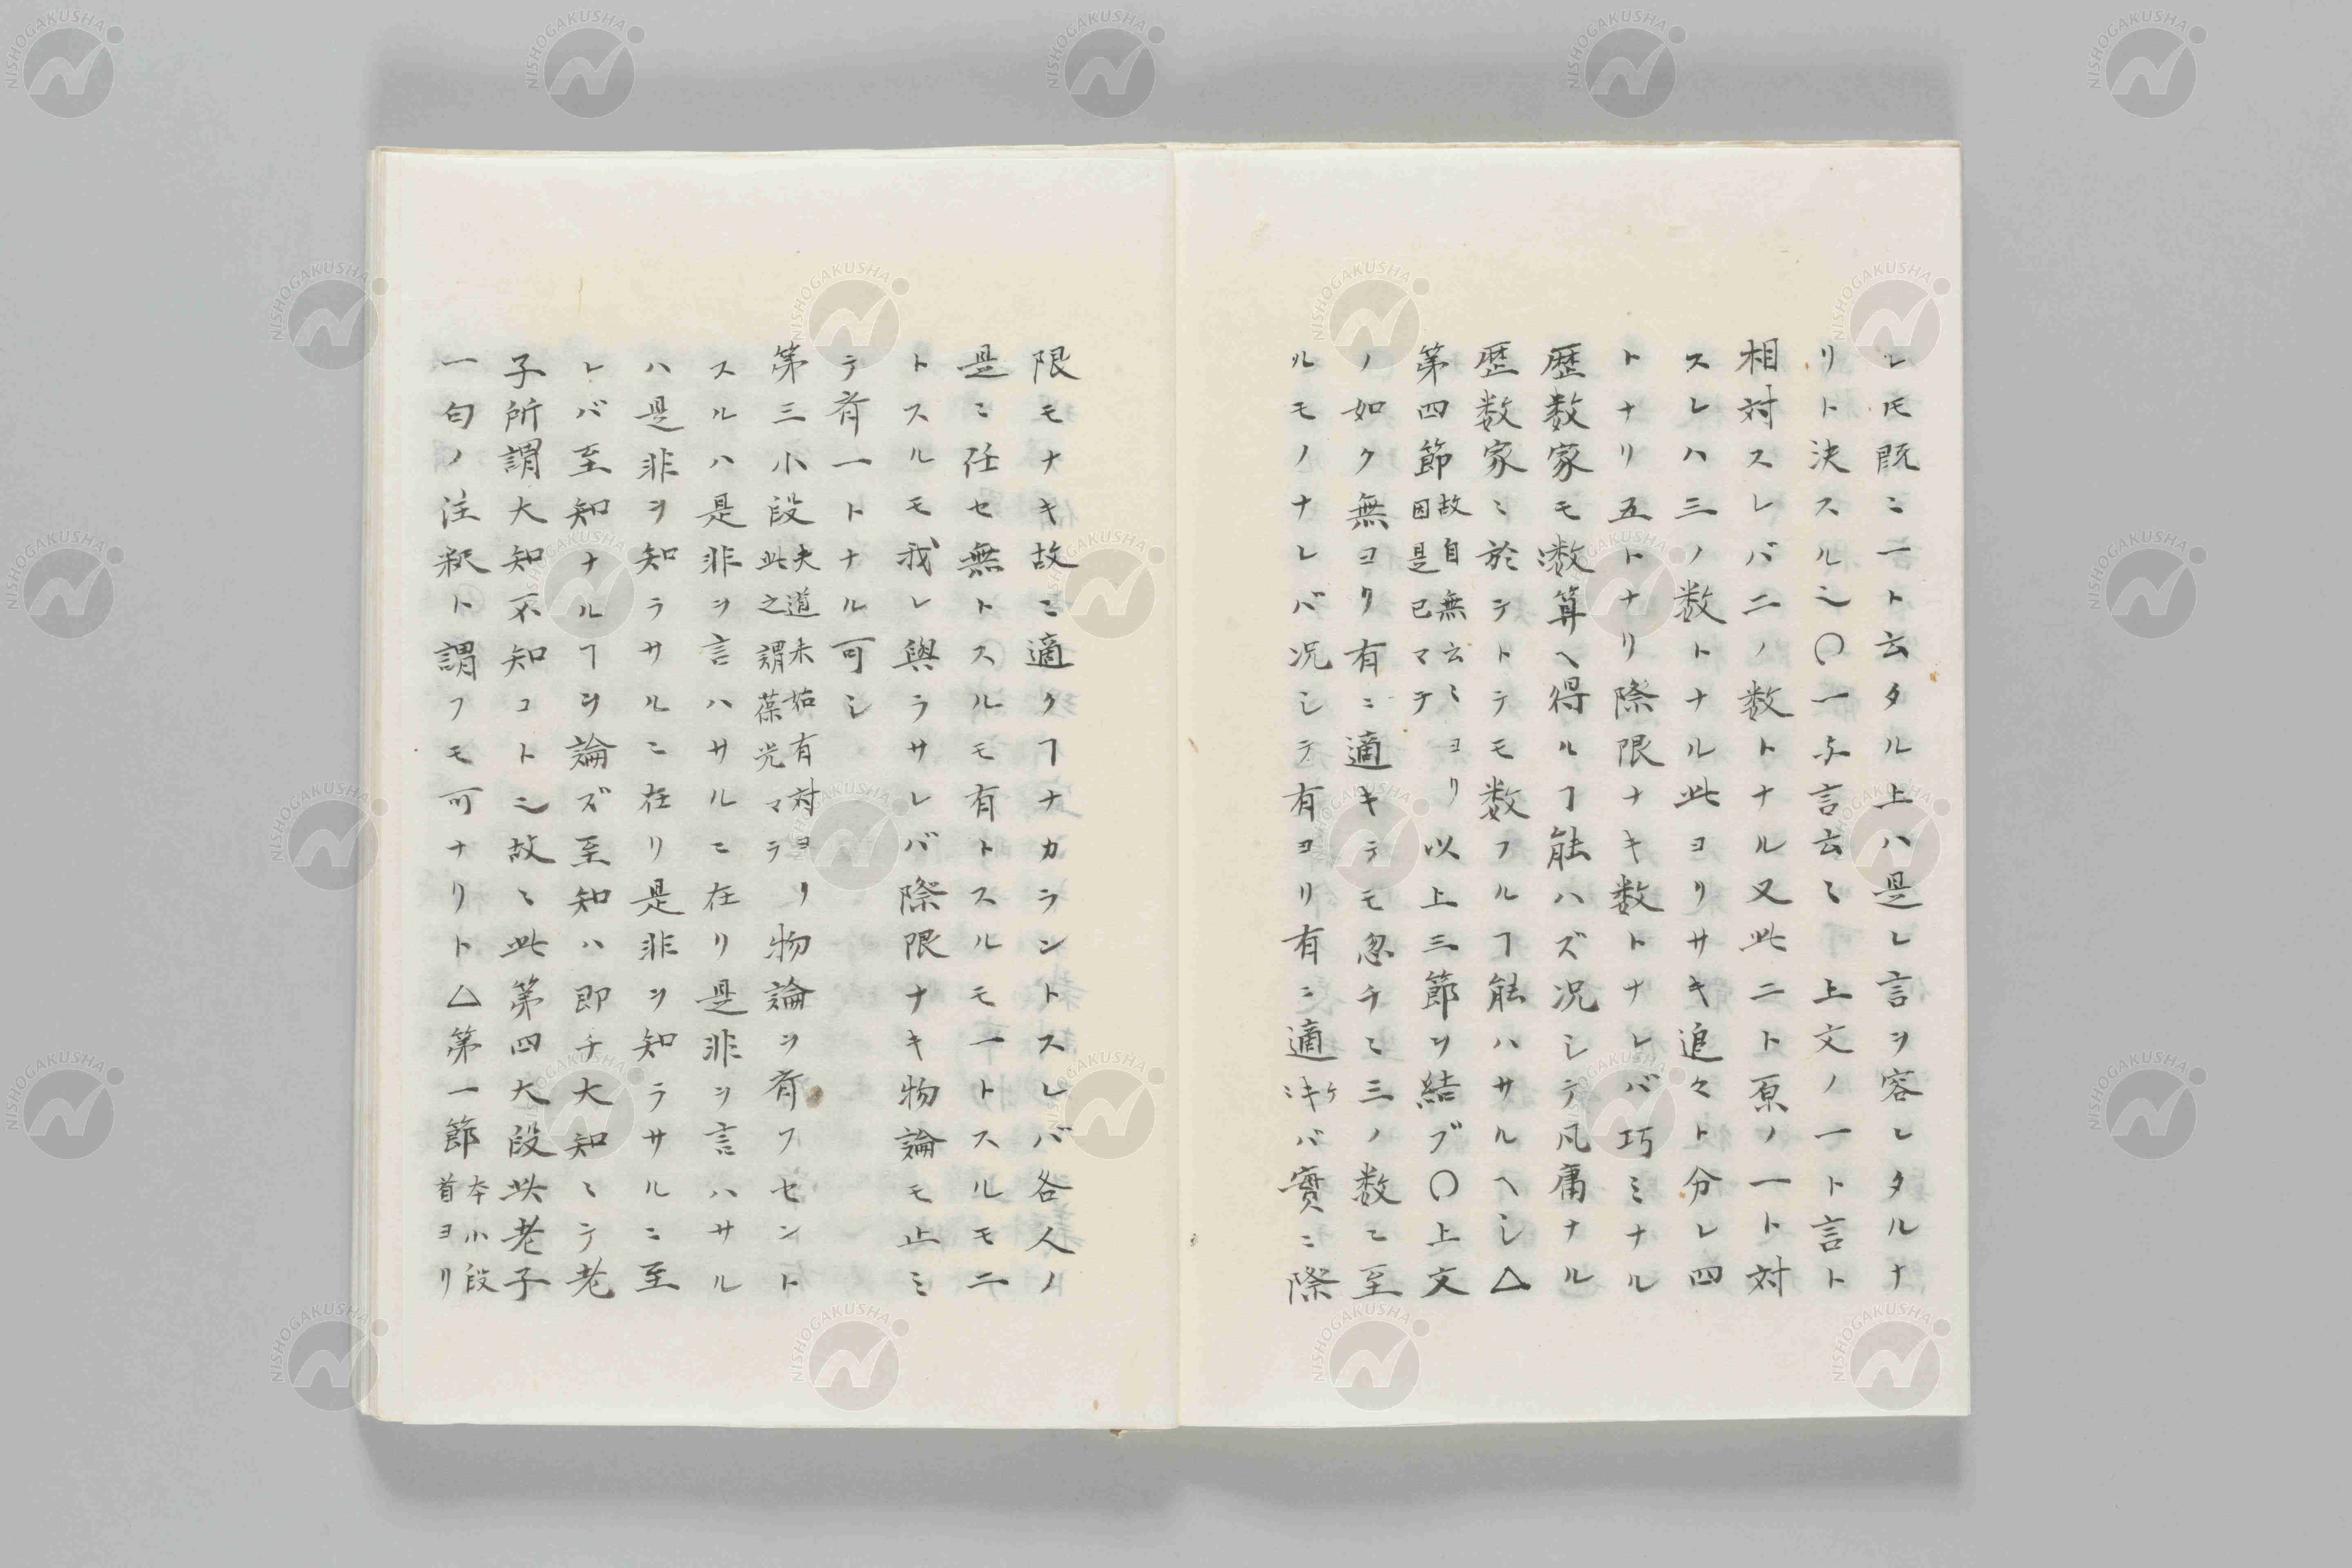 レ𪜈既ニ一ト云タル上ハ是レ言ヲ容レタルナ
リト决スル也〇一与言云〻 上文ノ一ト言ト
相対スレバ二ノ数トナル又此二ト原ノ一ト対
スレハ三ノ数トナル此ヨリサキ追々ト分レ四
トナリ五トナリ際限ナキ数トナレバ巧ミナル
歴数家モ数算ヘ得ルヿ能ハズ况シテ凡庸ナル
歴数家ニ於テトテモ数フルヿ能ハサルヘシ△
第四節故自無云〻ヨリ因是已マテ以上三節ヲ結ブ〇上文
ノ如ク無ヨリ有ニ適キテモ忽チニ三ノ数ニ至
ルモノナレバ况シテ有ヨリ有ニ適キケバ實ニ際
限モナキ故ニ適クヿナカラントスレバ各人ノ
是ニ任セ無トスルモ有トスルモ一トスルモ二
トスルモ我レ與ラサレバ際限ナキ物論モ止ミ
テ斉一トナル可シ
第三小段夫道未始有対ヨリ此之謂葆光マテ物論ヲ斉フセント
スルハ是非ヲ言ハサルニ在リ是非ヲ言ハサル
ハ是非ヲ知ラサルニ在リ是非ヲ知ラサルニ至
レバ至知ナルヿヲ論ズ至知ハ即チ大知ニテ老
子所謂大知不知コト也故ニ此第四大段此老子
一句ノ注釈ト謂フモ可ナリト△第一節本小段首ヨリ